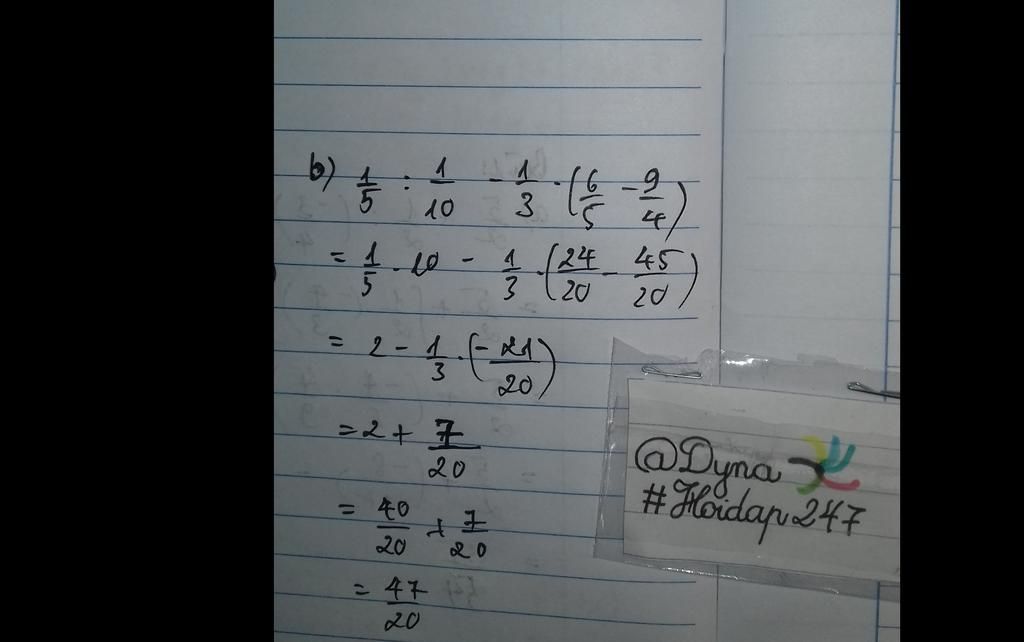 b) 1/5 : 1/10 - 1/3 · (6/5 - 9/4)
= 1/5 · 10 - 1/3 · (24/20 - 45/20)
= 2 - 1/3 · (-21/20)
= 2 + 7/20
= 40/20 + 7/20
= 47/20
@Dyna
#Hoidap247